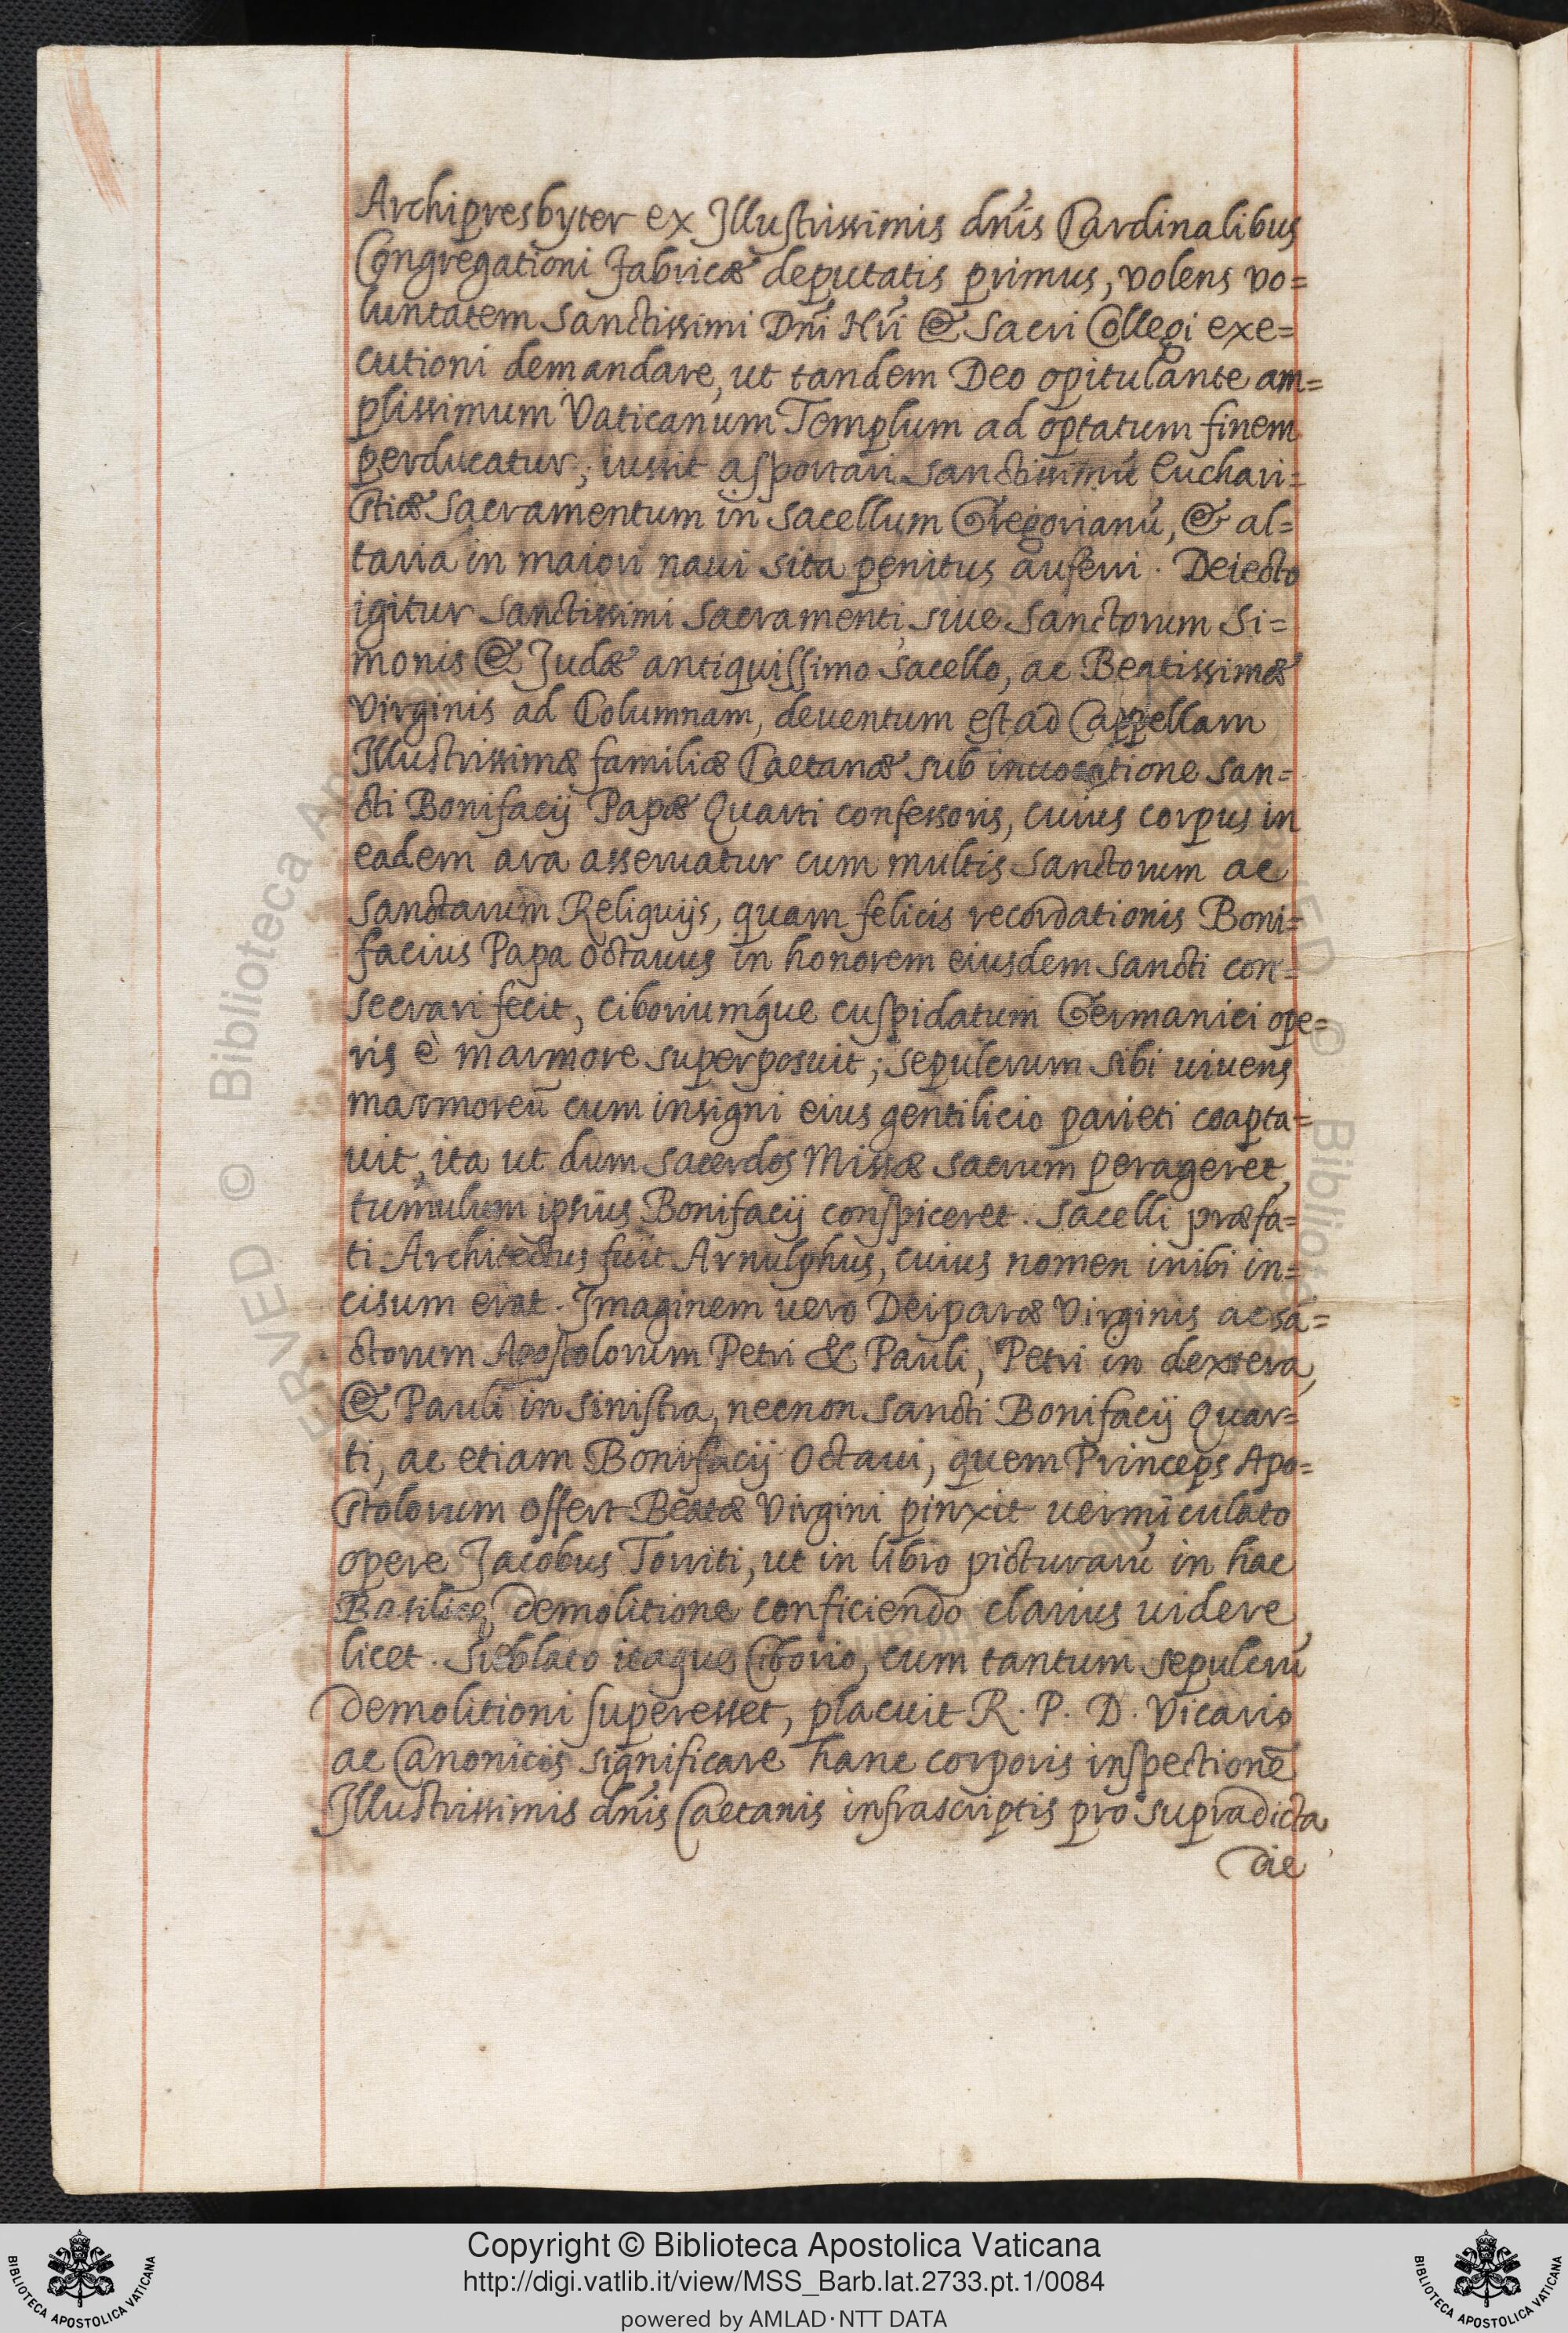 Archipresbyter ex Illustrissimis dn̄is Cardinalibus
Congregationi Fabricæ deputatis primus, volens vo=
luntatem Sanctissimi Dn̄i Nr̄i & Sacri Collegi exe=
cutioni demandare, ut tandem Deo opitulante am=
plissimum Vaticanum Templum ad optatum finem
perducatur; iussit asportari sanctissimū Euchari=
stiæ Sacramentum in Sacellum Gregorianū, & al=
taria in maiori naui sita penitus auferri. Deiecto
igitur sanctissimi Sacramenti, siue Sanctorum Si=
monis & Judæ antiquissimo Sacello, ac Beatissimæ
Virginis ad Columnam, deuentum est ad Cappellam
Illustrissimæ familiæ Caetanæ sub inuocatione san=
cti Bonifacij Papæ Quarti confessoris, cuius corpus in
eadem ara asseruatur cum multis Sanctorum ac
Sanctarum Reliquijs, quam felicis recordationis Boni=
facius Papa octauus in honorem eiusdem sancti con=
secrari fecit, ciboriumq́ue cuspidatum Germanici ope=
ris è marmore superposuit; sepulcrum sibi uiuens
marmoreū cum insigni eius gentilicio parieti coapta=
uit, ita ut dum sacerdos Missæ sacrum perageret,
tumulum ipsius Bonifacij conspiceret. Sacelli præfa=
ti Architectus fuit Arnulphus, cuius nomen inibi in=
cisum erat. Imaginem uero Deiparæ Virginis ac sā=
ctorum Apostolorum Petri & Pauli, Petri in dextera,
& Pauli in sinistra, necnon sancti Bonifacij Quar=
ti, ac etiam Bonifacij Octaui, quem Princeps Apo=
stolorum offert Beatæ Virgini pinxit uermiculato
opere Jacobus Torriti, ut in libro picturarū in hac
Basilicę demolitione conficiendo clarius uidere
licet. Sublato itaque Ciborio, cum tantum sepulcrū
demolitioni superesset, placuit R. P. D. Vicario
ac Canonicis significare hanc corporis inspectionē
Illustrissimis dn̄is Caetanis infrascriptis pro supradicta
die
Copyright © Biblioteca Apostolica Vaticana
http://digi.vatlib.it/view/MSS_Barb.lat.2733.pt.1/0084
powered by AMLAD·NTT DATA
BIBLIOTECA APOSTOLICA VATICANA
BIBLIOTECA APOSTOLICA VATICANA